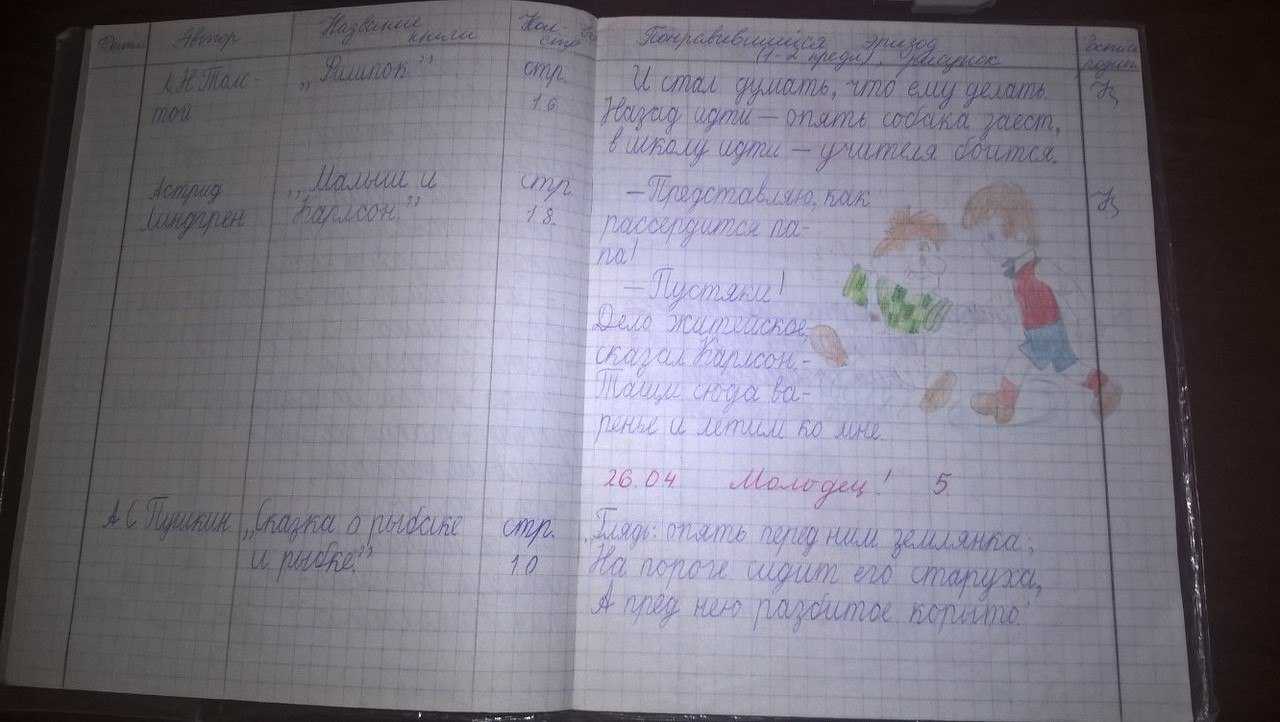 Дата Автор Название книги Кол-во стр Понравившийся эпизод (1-2 предл), рисунок Роспись родит.
Л Н Толс- „Филипок" стр. И стал думать, что ему делать.
той 16 Назад идти — опять собака заест,
в школу идти — учителя боится.
Астрид „Малыш и стр — Представляю, как
Линдгрен Карлсон" 18. рассердится па-
па!
— Пустяки!
Дело житейское
сказал Карлсон, -
Тащи сюда ва-
ренье и летим ко мне.
26.04 Молодец! 5
А С Пушкин „Сказка о рыбаке стр. Глядь: опять перед ним землянка;
и рыбке" 10 На пороге сидит его старуха,
А пред нею разбитое корыто.